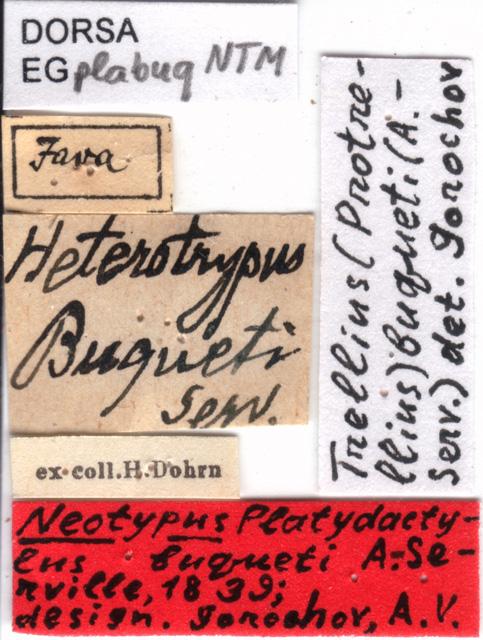 DORSA
EG plabuq NTM
Java
Heterotrypus
Buqueti
Serv.
ex coll. H. Dohrn
Trellius (Protre-
llius) buqueti (A.-
Serv.) det. Gorochov
Neotypus Platydacty-
lus buqueti A.-Se-
rville, 1839;
design. Gorochov, A.V.